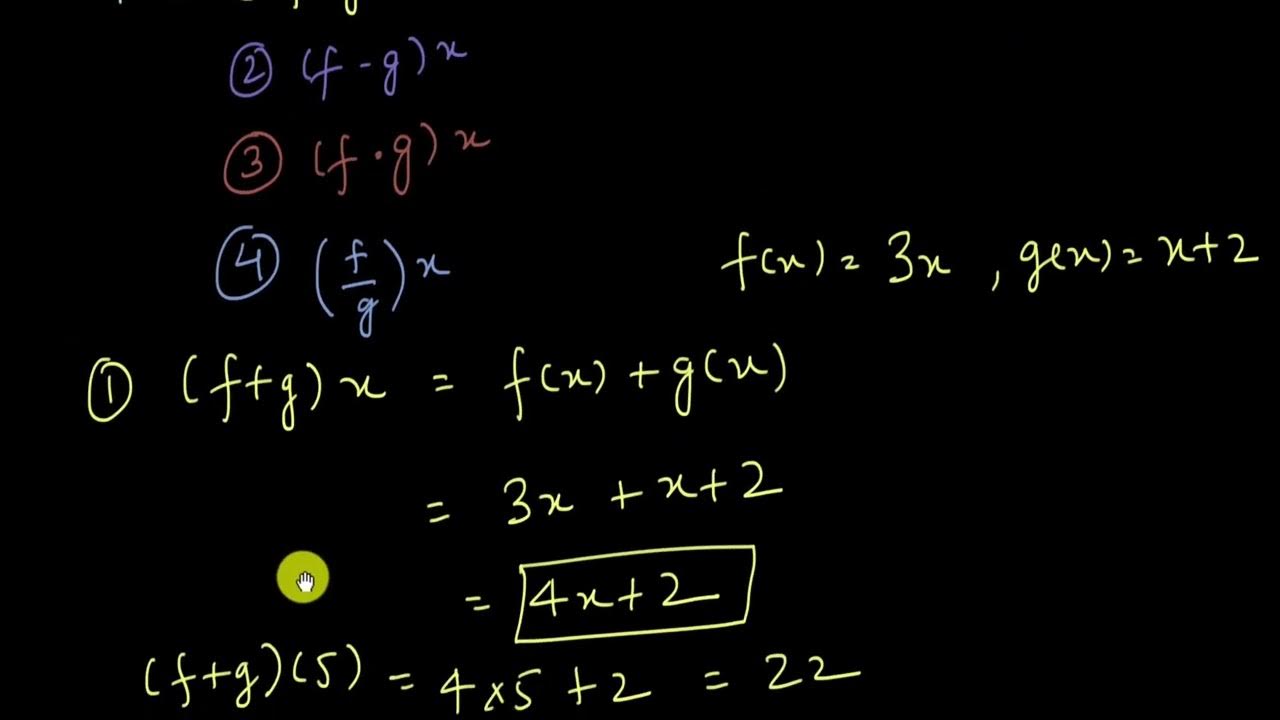 ② (f-g)x
③ (f·g)x
④ (f/g)x
f(x) = 3x , g(x) = x+2
① (f+g)x = f(x)+g(x)
= 3x + x+2
= 4x+2
(f+g)(5) = 4×5 +2 = 22